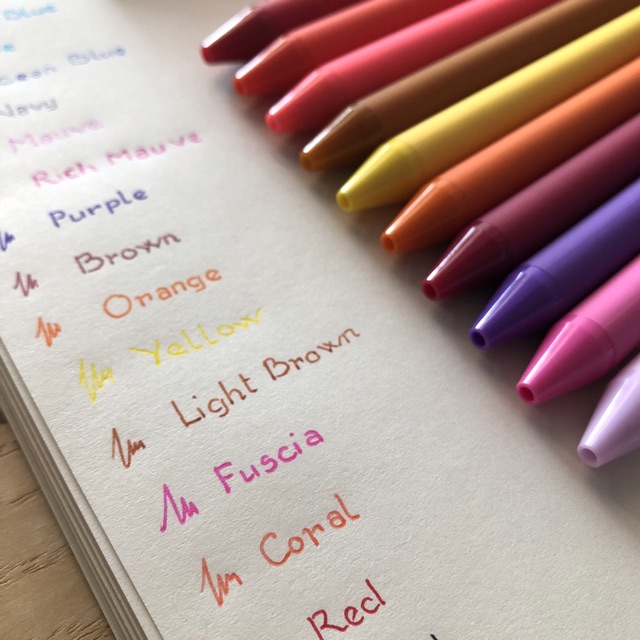 Blue
Ocean Blue
Navy
Mauve
Rich Mauve
Purple
Brown
Orange
Yellow
Light Brown
Fuscia
Coral
Red